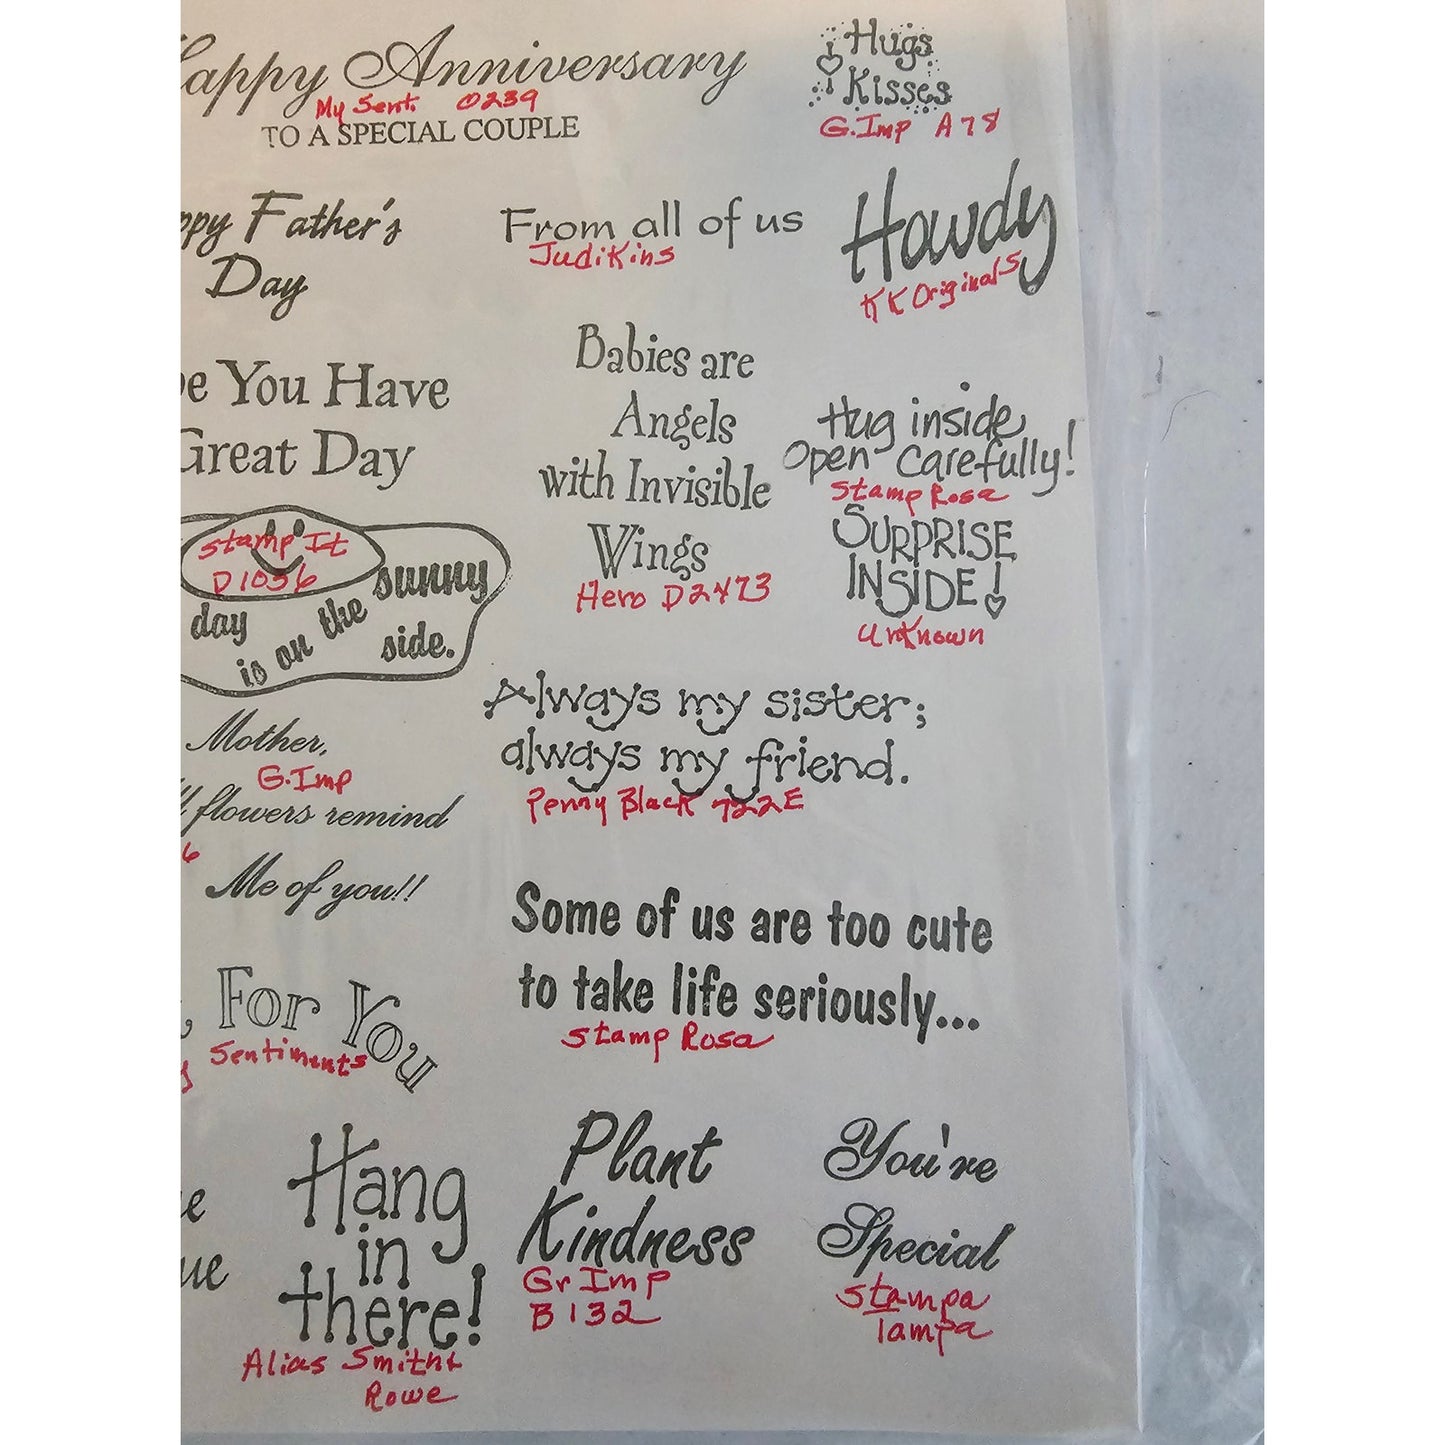 Happy Anniversary
My Sent. 0239
TO A SPECIAL COUPLE
Hugs
Kisses
G.Imp A78
ppy Father's
Day
From all of us
JudiKins
Howdy
KK Originals
e You Have
Great Day
Babies are
Angels
with Invisible
Wings
Hero D2473
Hug inside
Open Carefully!
Stamp Rosa
SURPRISE
INSIDE!
Unknown
Stamp It
D1036
sunny
day
is on the
side.
Always my sister;
always my friend.
Penny Black 722E
Mother,
G.Imp
flowers remind
6
Me of you!!
Some of us are too cute
to take life seriously...
Stamp Rosa
, For You
Sentiments
e
ue
Hang
in
there!
Alias Smith &
Rowe
Plant
Kindness
Gr Imp
B132
You're
Special
Stampa
Tampa